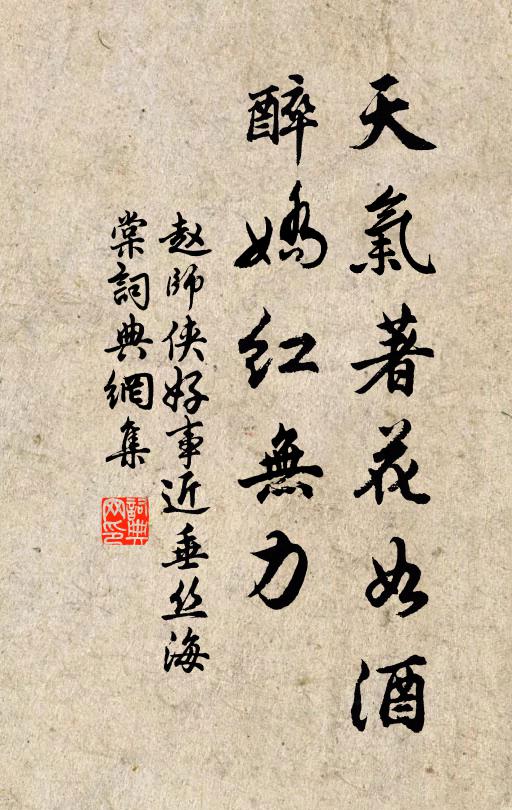 天氣著花如酒
醉嬌紅無力
赵師侠好事近垂丝海
棠詞典網集
詞典
网印